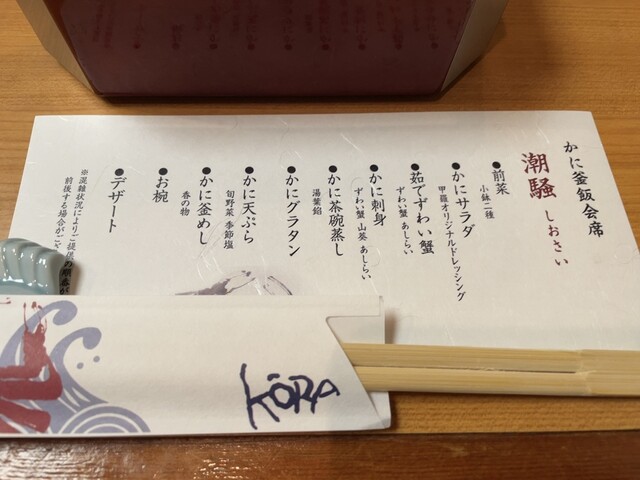 かに釜飯会席
潮騒 しおさい
●前菜
小鉢二種
●かにサラダ
甲羅オリジナルドレッシング
●茹でずわい蟹
ずわい蟹 あしらい
●かに刺身
ずわい蟹 山葵 あしらい
●かに茶碗蒸し
湯葉餡
●かにグラタン
●かに天ぷら
旬野菜 季節塩
●かに釜めし
香の物
●お椀
●デザート
※混雑状況によりご提供の順番が
前後する場合がござ
KŌRA